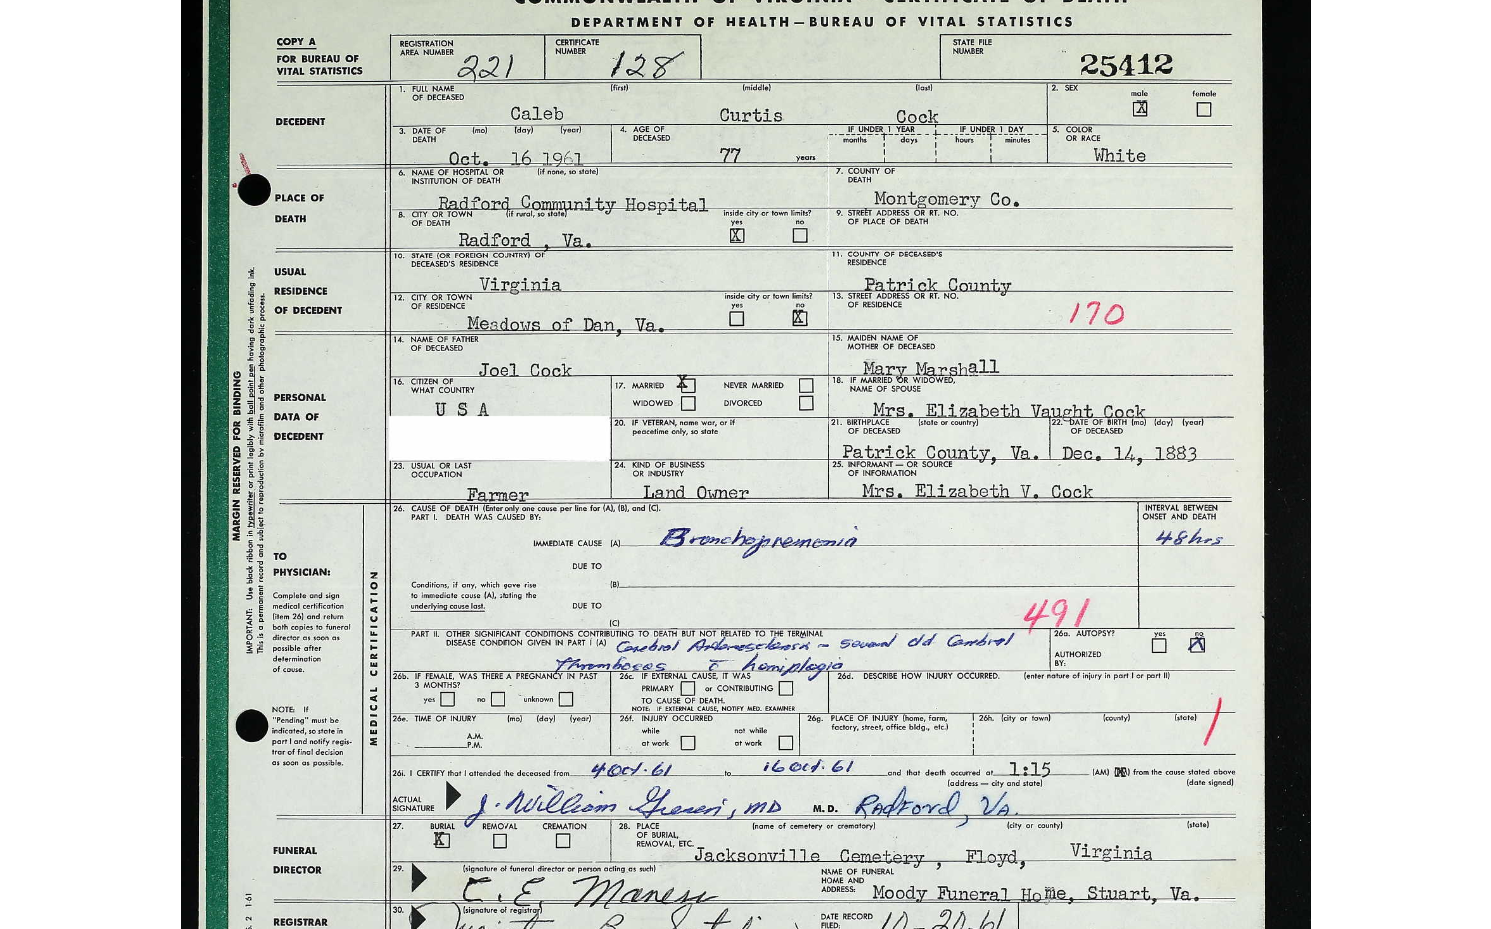 COMMONWEALTH OF VIRGINIA — CERTIFICATE OF DEATH
DEPARTMENT OF HEALTH—BUREAU OF VITAL STATISTICS
COPY A
FOR BUREAU OF
VITAL STATISTICS
REGISTRATION
AREA NUMBER
221
CERTIFICATE
NUMBER
128
STATE FILE
NUMBER
25412
DECEDENT
1. FULL NAME (first) (middle) (last)
OF DECEASED
Caleb Curtis Cock
2. SEX
male female
X
3. DATE OF (mo) (day) (year)
DEATH
Oct. 16 1961
4. AGE OF
DECEASED
77 years
IF UNDER 1 YEAR IF UNDER 1 DAY
months days hours minutes
5. COLOR
OR RACE
White
PLACE OF
DEATH
6. NAME OF HOSPITAL OR (if none, so state)
INSTITUTION OF DEATH
Radford Community Hospital
7. COUNTY OF
DEATH
Montgomery Co.
8. CITY OR TOWN (if rural, so state)
OF DEATH
Radford , Va.
inside city or town limits?
yes no
X
9. STREET ADDRESS OR RT. NO.
OF PLACE OF DEATH
USUAL
RESIDENCE
OF DECEDENT
10. STATE (OR FOREIGN COUNTRY) OF
DECEASED'S RESIDENCE
Virginia
11. COUNTY OF DECEASED'S
RESIDENCE
Patrick County
12. CITY OR TOWN
OF RESIDENCE
Meadows of Dan, Va.
inside city or town limits?
yes no
X
13. STREET ADDRESS OR RT. NO.
OF RESIDENCE
170
PERSONAL
DATA OF
DECEDENT
14. NAME OF FATHER
OF DECEASED
Joel Cock
15. MAIDEN NAME OF
MOTHER OF DECEASED
Mary Marshall
16. CITIZEN OF
WHAT COUNTRY
U S A
17. MARRIED X NEVER MARRIED
WIDOWED DIVORCED
18. IF MARRIED OR WIDOWED,
NAME OF SPOUSE
Mrs. Elizabeth Vaught Cock
20. IF VETERAN, name war, or if
peacetime only, so state
21. BIRTHPLACE (state or country)
OF DECEASED
Patrick County, Va.
22. DATE OF BIRTH (mo) (day) (year)
OF DECEASED
Dec. 14, 1883
23. USUAL OR LAST
OCCUPATION
Farmer
24. KIND OF BUSINESS
OR INDUSTRY
Land Owner
25. INFORMANT — OR SOURCE
OF INFORMATION
Mrs. Elizabeth V. Cock
MARGIN RESERVED FOR BINDING
IMPORTANT: Use black ribbon in typewriter or print legibly with ball point pen having dark unfading ink.
This is a permanent record and subject to reproduction by microfilm and other photographic process.
TO
PHYSICIAN:
Complete and sign
medical certification
(item 26) and return
both copies to funeral
director as soon as
possible after
determination
of cause.
NOTE: IF
"Pending" must be
indicated, so state in
part I and notify regis-
trar of final decision
as soon as possible.
MEDICAL CERTIFICATION
26. CAUSE OF DEATH (Enter only one cause per line for (A), (B), and (C).
PART I. DEATH WAS CAUSED BY:
INTERVAL BETWEEN
ONSET AND DEATH
IMMEDIATE CAUSE (A) Bronchopnemonia 48 hrs
DUE TO
Conditions, if any, which gave rise
to immediate cause (A), stating the
underlying cause last.
(B)
DUE TO
(C)
491
PART II. OTHER SIGNIFICANT CONDITIONS CONTRIBUTING TO DEATH BUT NOT RELATED TO THE TERMINAL
DISEASE CONDITION GIVEN IN PART I (A) Cerebral Arteriosclerosis — several old Cerebral
Thromboses c hemiplegia
26a. AUTOPSY? yes no
X
AUTHORIZED
BY:
26b. IF FEMALE, WAS THERE A PREGNANCY IN PAST
3 MONTHS?
yes no unknown
26c. IF EXTERNAL CAUSE, IT WAS
PRIMARY or CONTRIBUTING
TO CAUSE OF DEATH.
NOTE: IF EXTERNAL CAUSE, NOTIFY MED. EXAMINER
26d. DESCRIBE HOW INJURY OCCURRED. (enter nature of injury in part I or part II)
26e. TIME OF INJURY (mo) (day) (year)
A.M.
P.M.
26f. INJURY OCCURRED
while not while
at work at work
26g. PLACE OF INJURY (home, farm,
factory, street, office bldg., etc.)
26h. (city or town) (county) (state)
1
26i. I CERTIFY that I attended the deceased from 4 Oct. 61 to 16 Oct. 61 and that death occurred at 1:15 (AM) from the cause stated above
(address — city and state) (date signed)
ACTUAL
SIGNATURE
J. William M.D. Radford, Va.
FUNERAL
DIRECTOR
27. BURIAL REMOVAL CREMATION
X
28. PLACE
OF BURIAL,
REMOVAL, ETC.
(name of cemetery or crematory) (city or county) (state)
Jacksonville Cemetery , Floyd, Virginia
29. (signature of funeral director or person acting as such)
C. E. Maness
NAME OF FUNERAL
HOME AND
ADDRESS:
Moody Funeral Home, Stuart, Va.
REGISTRAR
30. (signature of registrar)
DATE RECORD
FILED:
10-20-61
2 1-61